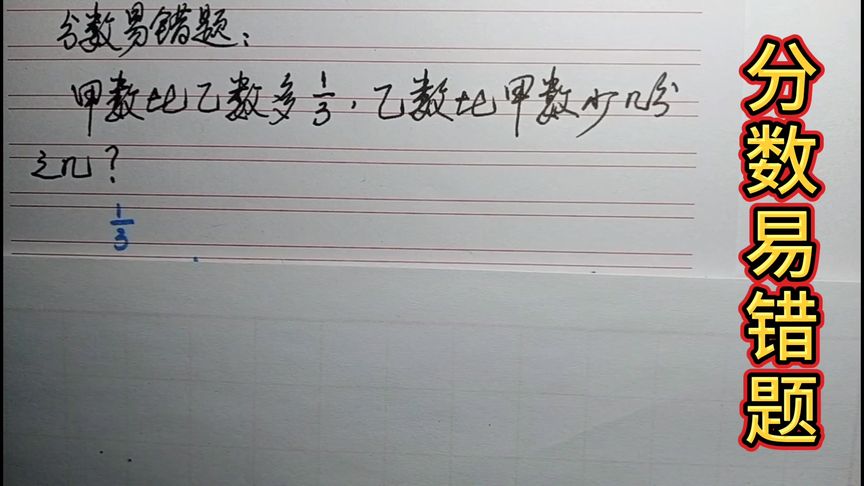 分数易错题：
甲数比乙数多1/3，乙数比甲数少几分
之几？
1/3
分数易错题